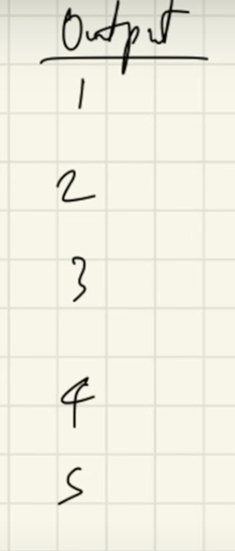 Output
1
2
3
4
5